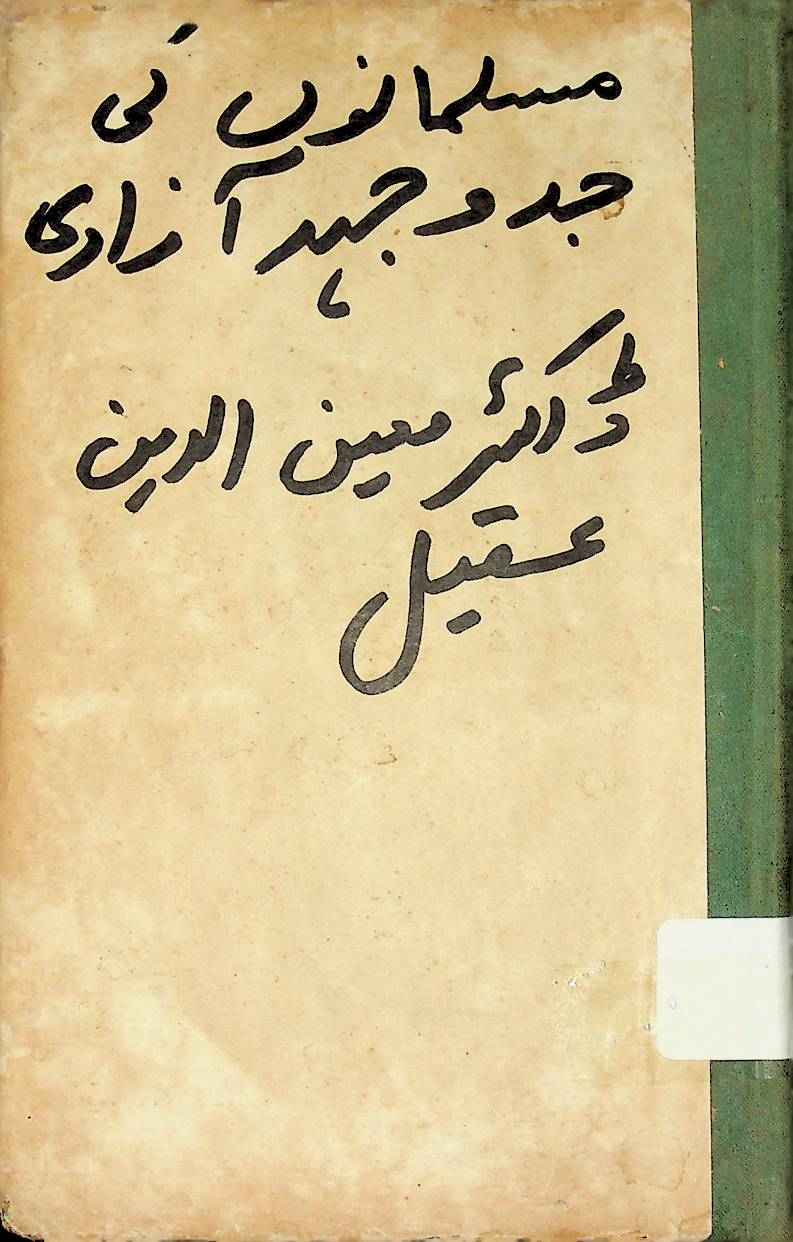 مسلمانوں کی
جدوجہد آزادی
ڈاکٹر معین الدین
عقیل